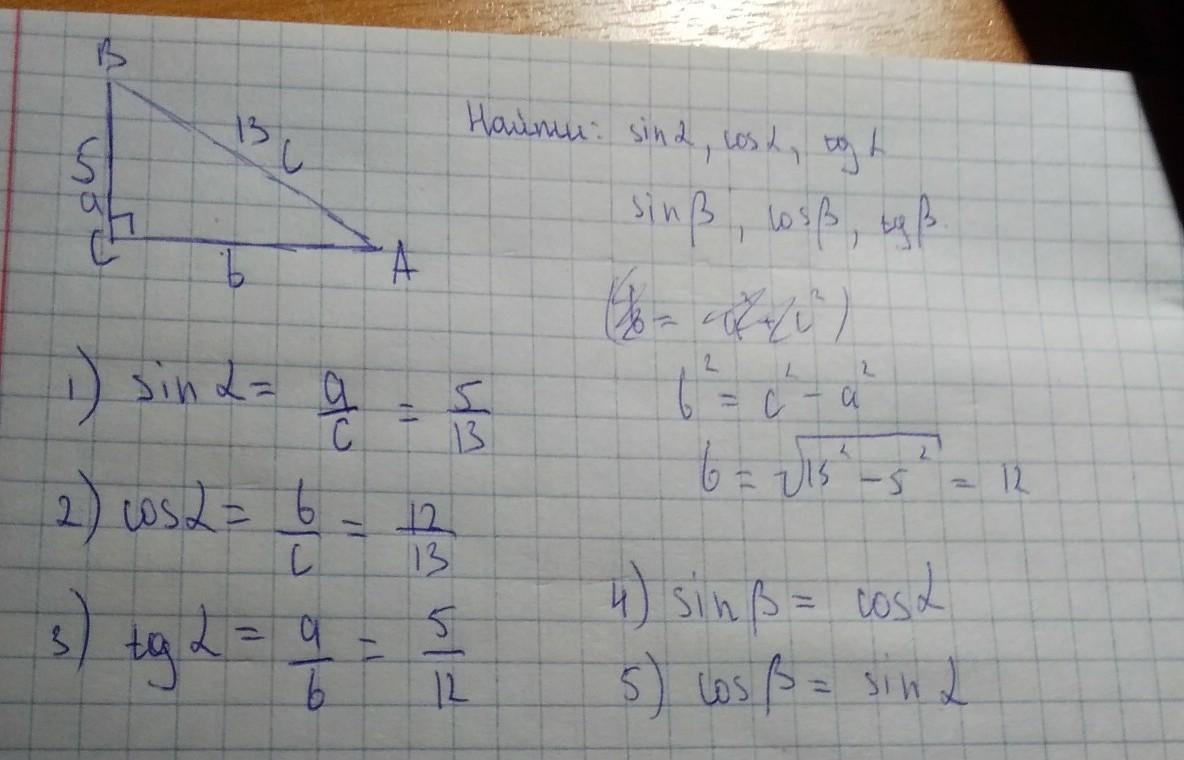 B
13
c
5
a
C
b
A
Найти: sin α, cos α, tg α
sin β, cos β, tg β.
b² = c² - a²
b = √13² - 5² = 12
1) sin α = a/c = 5/13
2) cos α = b/c = 12/13
3) tg α = a/b = 5/12
4) sin β = cos α
5) cos β = sin α